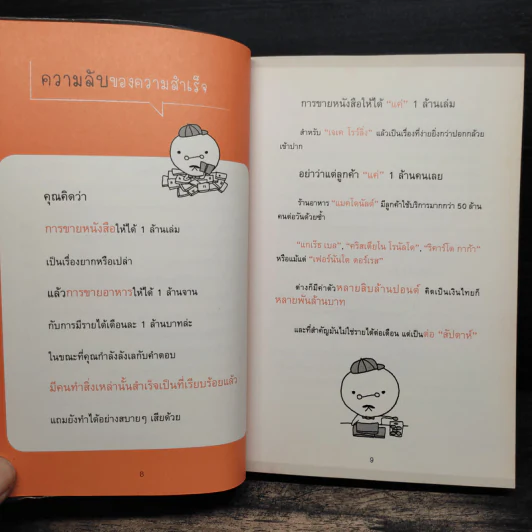 ความลับของความสำเร็จ
คุณคิดว่า
การขายหนังสือให้ได้ 1 ล้านเล่ม
เป็นเรื่องยากหรือเปล่า
แล้วการขายอาหารให้ได้ 1 ล้านจาน
กับการมีรายได้เดือนละ 1 ล้านบาทล่ะ
ในขณะที่คุณกำลังลังเลกับคำตอบ
มีคนทำสิ่งเหล่านั้นสำเร็จเป็นที่เรียบร้อยแล้ว
แถมยังทำได้อย่างสบายๆ เสียด้วย
8
การขายหนังสือให้ได้ "แค่" 1 ล้านเล่ม
สำหรับ "เจเค โรว์ลิ่ง" แล้วเป็นเรื่องที่ง่ายยิ่งกว่าปอกกล้วย
เข้าปาก
อย่าว่าแต่ลูกค้า "แค่" 1 ล้านคนเลย
ร้านอาหาร "แมคโดนัลด์" มีลูกค้าใช้บริการมากกว่า 50 ล้าน
คนต่อวันด้วยซ้ำ
"แกเร็ธ เบล", "คริสเตียโน โรนัลโด", "ริคาร์โด กาก้า"
หรือแม้แต่ "เฟอร์นันโด ตอร์เรส"
ต่างก็มีค่าตัวหลายสิบล้านปอนด์ คิดเป็นเงินไทยก็
หลายพันล้านบาท
และที่สำคัญมันไม่ใช่รายได้ต่อเดือน แต่เป็นต่อ "สัปดาห์"
9